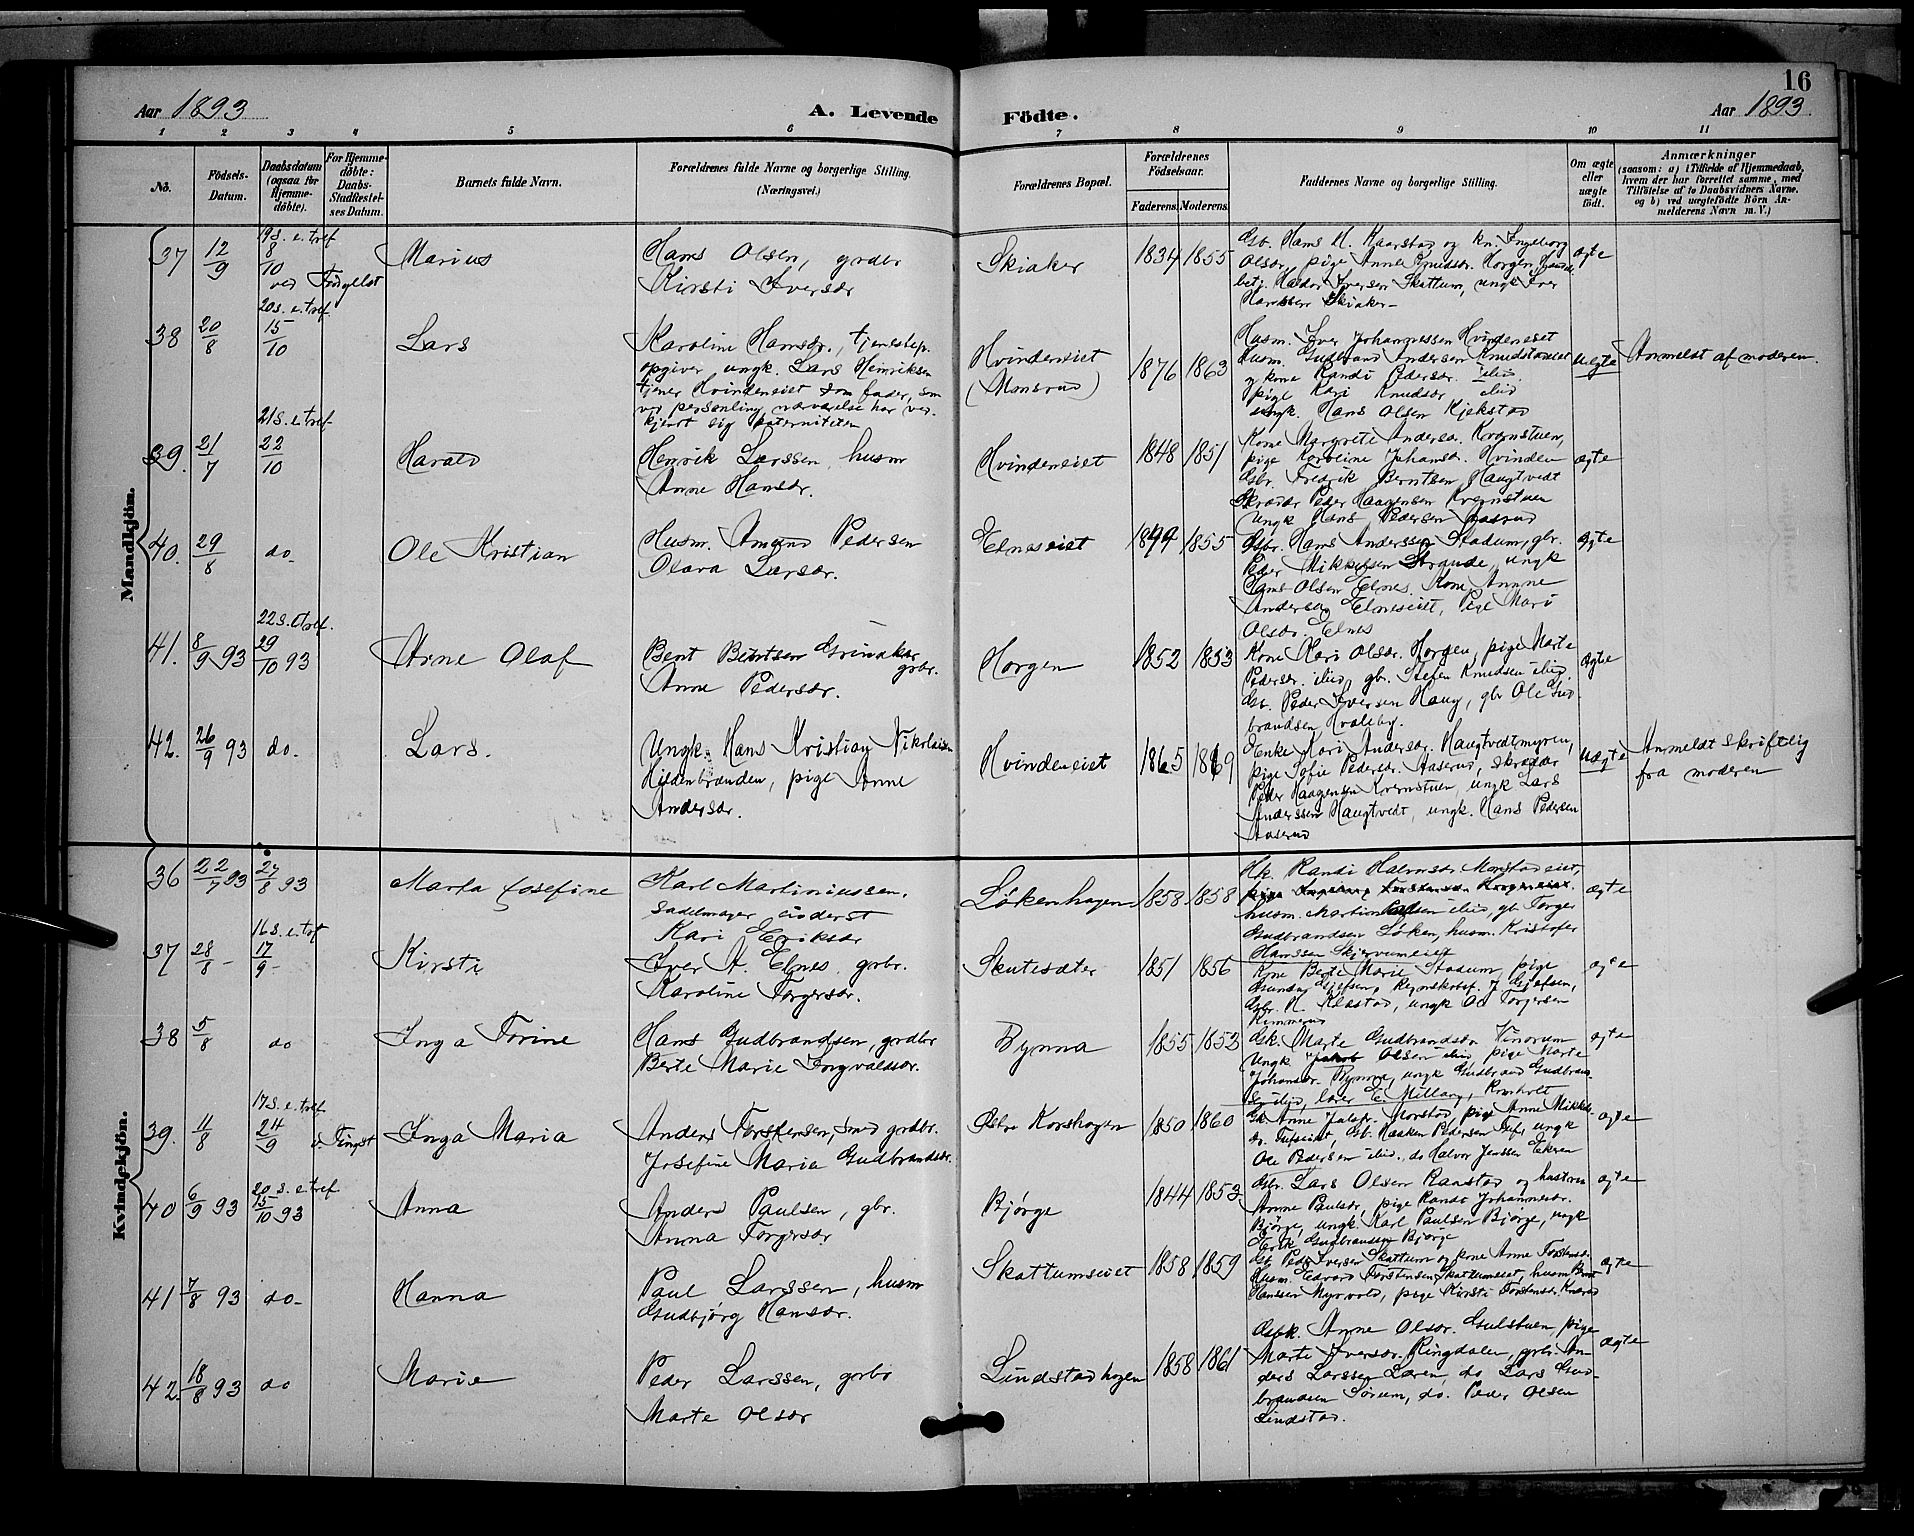 16
Aar 1893
A. Levende
Födte.
Aar 1893
1 2 3 4 5 6 7 8 9 10 11
No.
Födsels-
Datum.
Daabsdatum
(ogsaa for
Hjemme-
döbte).
For Hjemme-
döbte:
Daabs-
Stadfestel-
ses Datum.
Barnets fulde Navn.
Forældrenes fulde Navne og borgerlige Stilling.
(Næringsvei.)
Forældrenes Bopæl.
Forældrenes
Födselsaar.
Faderens. Moderens.
Faddernes Navne og borgerlige Stilling.
Om ægte
eller
uægte
födt.
Anmærkninger
(saasom: a) i Tilfælde af Hjemmedaab,
hvem der har forrettet samme, med
Tilföielse af to Daabsvidners Navne,
og b) ved uægtefödte Börn An-
melderens Navn m. V.)
Mandkjön.
37 12/9 19 s. e. tref 8/10 ved Marius
Hans Olsen, grdbr
Kirsti Iversdr
Skiaker 1834 1855
Gb. Hans H. Kaarstad og kn. Ingeborg
Olsdr, pige Anne Knudsdr. Horgen,
Haldor Iversen Skattum, ungk Iver
Hanssen Skiaker
ægte
38 20/8 20 s. e. tref. 15/10 Lars
Karoline Hansdr., tjenestep.
opgiver ungk. Lars Henriksen
tjener Hvindeneiet som fader, som
ved personling nærværelse har ved-
kjendt sig paterniteten
Hvindeneiet
(Monsrud)
1876 1863
Husm. Iver Johannessen Hvindeneiet
Husm. Gudbrand Andersen Knudstadeiet
og kone Randi Pedersdr. ibid.
pige Kari Knudsdr ibid
ungk. Hans Olsen Kjekstad
uægte
Anmeldt af moderen.
39. 21/7 21 s. e. tref 22/10 Harald
Henrik Larssen, husm
Anne Hansdr.
Hvindeneiet 1848 1851
Kone Margrete Andersdr. Kvernstuen,
pige Karoline Johansdr. Hvinden
Gbr. Fredrik Berntsen Haugtvedt
Skrædder Peder Haagensen Kvernstuen
Ungk Hans Pedersen Aaserud
ægte
40. 29/8 do. Ole Kristian
Husm. Amund Pedersen
Olava Larsdr.
Elneseiet 1849 1855
Gbr. Hans Anderssen Stadum, gbr.
Peder Mikkelsen Strande, ungk
Hans Olsen Elnes, Kone Annne
Andersdr Elneseiet, Pige Mari
Olsdr. Elnes
ægte
41. 8/9 93 22 s. e. tref. 29/10 93 Arne Olaf
Bent Berntsen Grinaker
grbr.
Anne Pedersdr.
Horgen 1852 1853
Kone Kari Olsdr. Horgen, pige Marte
Pedersdr. ibid, gbr. Steffen Knudsen ibid.
Gb. Peder Iversen Haug, gbr Ole Gud
brandsen Hvaleby.
ægte
42. 26/9 93 do. Lars.
Ungk. Hans Kristian Nikolaisen
Hildenbranden, pige Anne
Andersdr.
Hvindeneiet 1865 1869
Enke Kari Andersdr. Haugtvedtmyren,
pige Sofie Pedersdr. Aaserud, skrædder
Peder Haagensen Kvernstuen, ungk Lars
Anderssen Haugtvedt, ungk. Hans Pedersen
Aaserud
uægte
Anmeldt skriftlig
fra moderen
Kvindekjön.
36 22/7 93 27/8 93 Marta Josefine
Karl Martiniussen,
sadelmager
Kari Eriksdr
Løkenhagen 1858 1858
Hk. Randi Halvorsdr. Morstadeiet,
husm. Martin Olsen ibid, gb. Torger
Gudbrandsen Løken, husm. Kristofer
Hanssen Skjervumeiet
ægte
37 28/8 - 16 s. e. tref 17/9 - Kirsti
Iver A. Elnes, grbr.
Karoline Torgersdr.
Skutesæter 1851 1856
Kone Berte Marie Stadum, pige
Gbr. H. Klæstad, ungk Ole Torgersen
ægte
38 5/8 do Inga Torine
Hans Gudbrandsen, grdbr
Berte Marie Torgvalsdr.
Bymna 1855 1853
Gk. Marte Gudbrandsdr. Vinorum
Ungk Jakob Olsen ibid, pige Marte
Johansdr. Bymna, ungk Gudbrand Gudbrand-
sen ibid,
ægte
39. 11/8 17 s. e. tref 24/9 Inga Maria
Anders Torstensen, smed grdbr.
Josefine Marie Gudbrandsdr.
Østre Korshagen 1850 1860
Gk. Anne Morstad, pige Anne Mikkels-
dr. Gb. Haaken Pedersen ungk
Ole Pedersen ibid, do Halvor Jenssen Ekeren
ægte
40 6/9 93 20 s. e. tref 15/10 93 Anna
Anders Paulsen, gbr.
Anna Torgersdr
Bjørge 1844 1853
Gbr. Lars Olsen Raastad og hustru
Anne Paulsdr, pige Randi Johannesdr.
Bjørge, ungk. Karl Paulsen Bjørge, ungk
Erik Gudbrandsen Bjørge
ægte
41 7/8 93 do. Hanna
Paul Larssen, husm
Gudbjørg Hansdr.
Skattumseiet 1858 1859
Gb. Peder Iversen Skattum og kone Anne Torstensdr.
Husm. Edvard Torstensen Skattumseiet, husm Bernt
Hanssen Myrvold, pige Kirsti Torstensdr. Knarud
ægte
42. 18/8 93 do Marie
Peder Larssen, grbr
Marte Olsdr
Lindstadhagen 1858 1861
Gbk. Anne Olsdr. Gulstuen, pige
Marte Iversdr. Ringdalen, grbr. An
ders Larssen Løren, do Lars Gud-
brandsen Sørum, do. Peder Olsen
Lindstad.
ægte